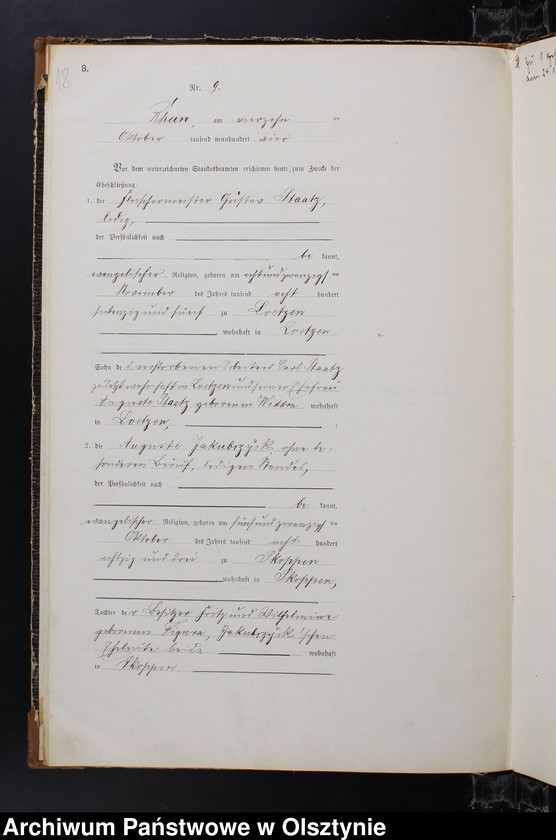 18
B.
Nr. 9.
Rhein, am vierzehn ten
Oktober tausend neunhundert vier
Vor dem unterzeichneten Standesbeamten erschienen heute zum Zwecke der
Eheschließung:
1. der Fleischermeister Gustav Staatz,
ledig,
der Persönlichkeit nach
be kannt,
evangelischer Religion, geboren am achtundzwanzigs ten
November des Jahres tausend acht hundert
siebenzig und fünf zu Loetzen
wohnhaft in Loetzen
Sohn des verstorbenen Arbeiters Carl Staatz
zuletzt wohnhaft in Loetzen und seiner Ehefrau
Auguste Staatz geborenen wohnhaft
in Loetzen, ;
2. die Auguste Jakubczysk, ohne be-
sonderen Beruf, ledigen Standes,
der Persönlichkeit nach
be kannt,
evangelischer Religion, geboren am fünfundzwanzigs ten
Oktober des Jahres tausend acht hundert
achtzig und drei zu Skoppen
wohnhaft in Skoppen,
Tochter der Besitzer Fritz und Wilhelmine
geborenen Figura, Jakubczysk'schen
Eheleute beide wohnhaft
in Skoppen
Archiwum Państwowe w Olsztynie